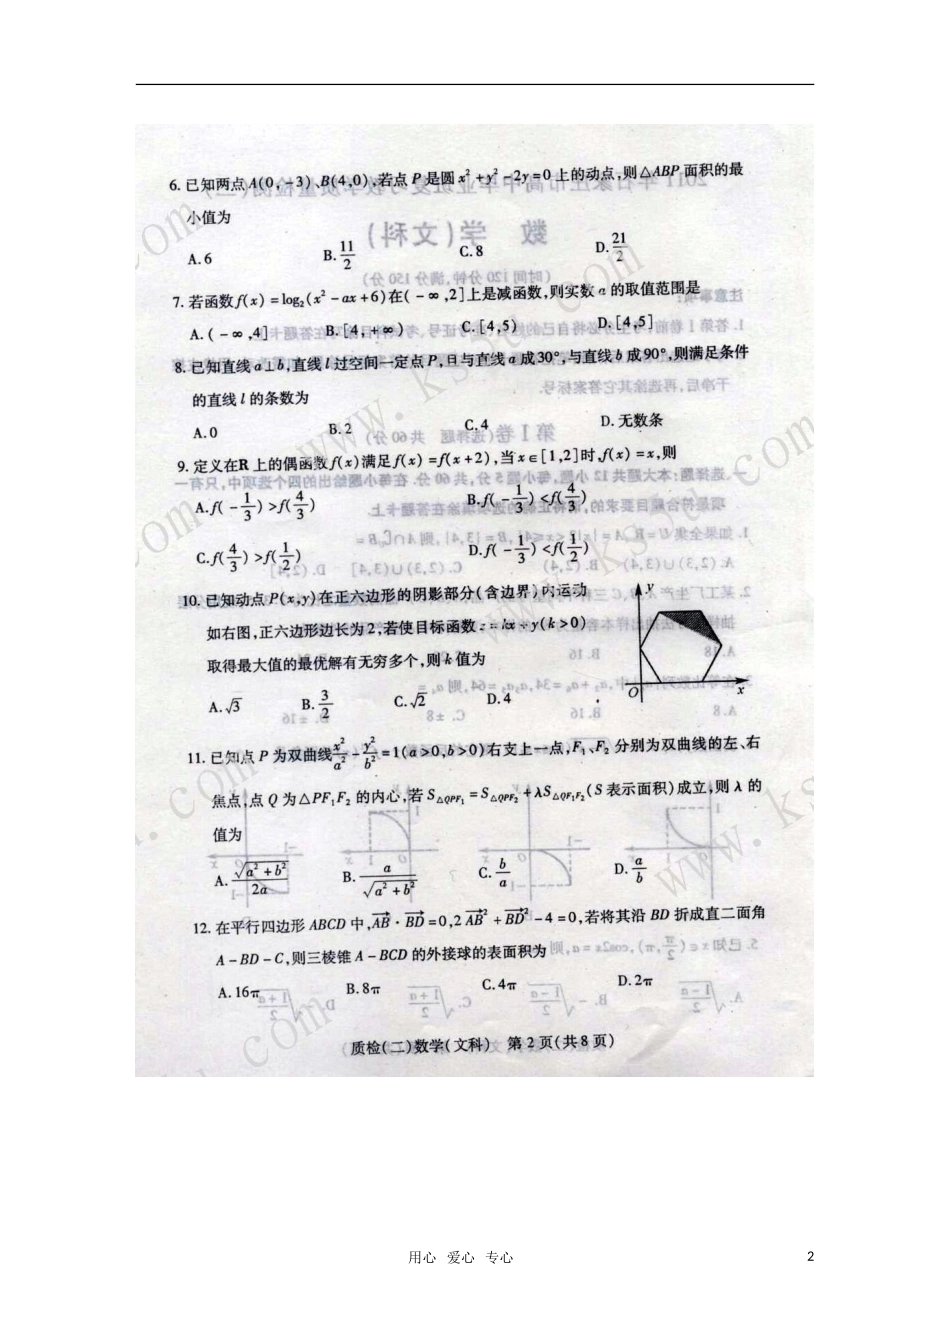 6.已知两点A(0,-3)、B(4,0),若点P是圆x²+y²-2y=0上的动点,则△ABP面积的最
小值为
A.6 B.11/2 C.8 D.21/2
7.若函数f(x)=log₂(x²-ax+6)在(-∞,2]上是减函数,则实数a的取值范围是
A.(-∞,4] B.[4,+∞) C.[4,5) D.[4,5]
8.已知直线a⊥b,直线l过空间一定点P,且与直线a成30°,与直线b成90°,则满足条件
的直线l的条数为
A.0 B.2 C.4 D.无数条
9.定义在R上的偶函数f(x)满足f(x)=f(x+2),当x∈[1,2]时,f(x)=x,则
A.f(-1/3)>f(4/3) B.f(-1/3)<f(4/3)
C.f(4/3)>f(1/2) D.f(-1/3)<f(1/2)
10.已知动点P(x,y)在正六边形的阴影部分(含边界)内运动
如右图,正六边形边长为2,若使目标函数z=kx+y(k>0)
取得最大值的最优解有无穷多个,则k值为
A.√3 B.3/2 C.√2 D.4
y
O
x
11.已知点P为双曲线x²/a²-y²/b²=1(a>0,b>0)右支上一点,F₁、F₂分别为双曲线的左、右
焦点,点Q为△PF₁F₂的内心,若S△QPF₁=S△QPF₂+λS△QF₁F₂(S表示面积)成立,则λ的
值为
A.√(a²+b²)/2a B.a/√(a²+b²) C.b/a D.a/b
12.在平行四边形ABCD中,AB·BD=0,2AB²+BD²-4=0,若将其沿BD折成直二面角
A-BD-C,则三棱锥A-BCD的外接球的表面积为
A.16π B.8π C.4π D.2π
质检(二)数学(文科) 第2页(共8页)
用心 爱心 专心 2